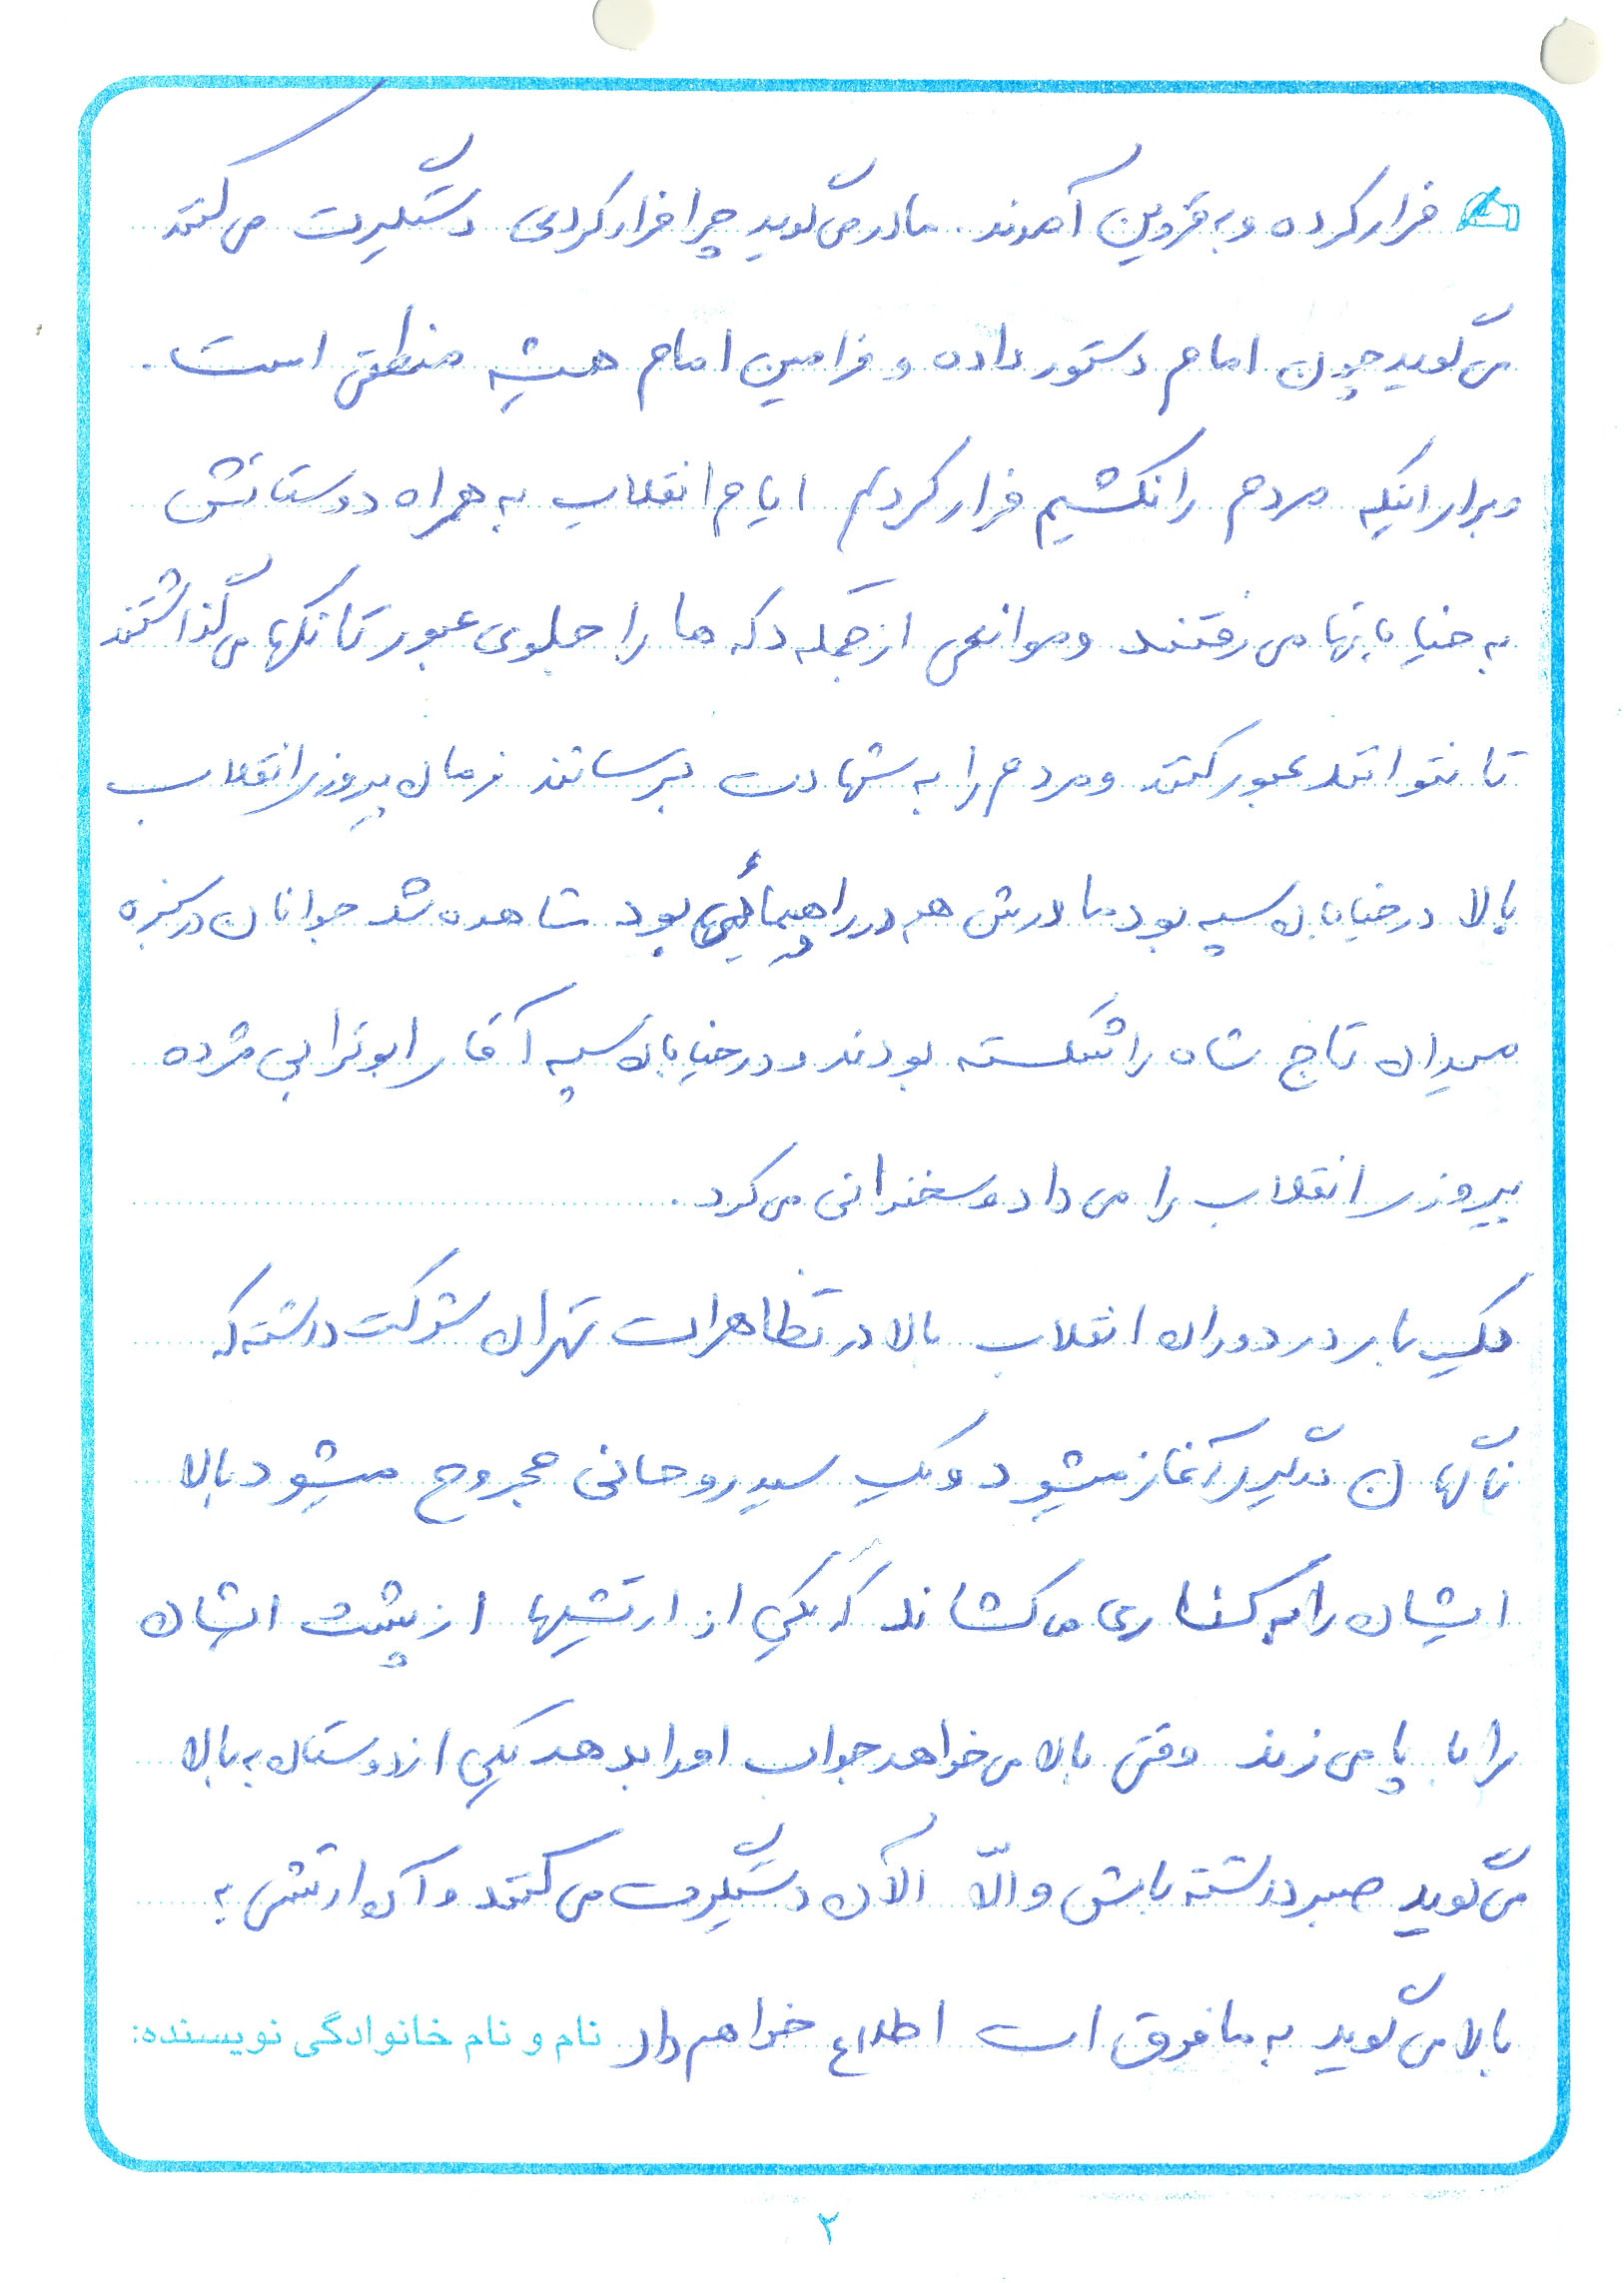 فرار کرده و به قزوین آمدند. مادر می‌گوید چرا فرار کردی دستگیرت می‌کنند
می‌گوید چون امام دستور داده و فرامین امام همیشه منطقی است.
و برای اینکه مردم را نکشیم فرار کردیم ایام انقلاب به همراه دوستانش
به خیابانها می‌رفتند و موانعی از جمله دکه ها را جلوی عبور تانکها می‌گذاشتند
تا نتوانند عبور کنند و مردم را به شهادت برسانند زمان پیروزی انقلاب
بالا در خیابان سپه بود مادرش هم در راهپیمائی بود شاهد شد جوانان در سبزه
میدان تاج شاه را شکسته بودند و در خیابان سپه آقای ابوترابی مژده
پیروزی انقلاب را می داد و سخنرانی می‌کرد.
یک بار در دوران انقلاب بالا در تظاهرات تهران شرکت داشته که
ناگهان تیراندازی آغاز میشود و یک سید روحانی مجروح میشود بالا
ایشان را به کناری می کشاند که یکی از ارتشیها از پشت ایشان
را با پا می زند وقتی بالا می‌خواهد جواب او را بدهد یکی از دوستان به بالا
می‌گوید صبر داشته باش والّا الآن دستگیرت می‌کنند و آن ارتشی به
بالا می‌گوید به مافوق ات اطلاع خواهم داد نام و نام خانوادگی نویسنده:
۲